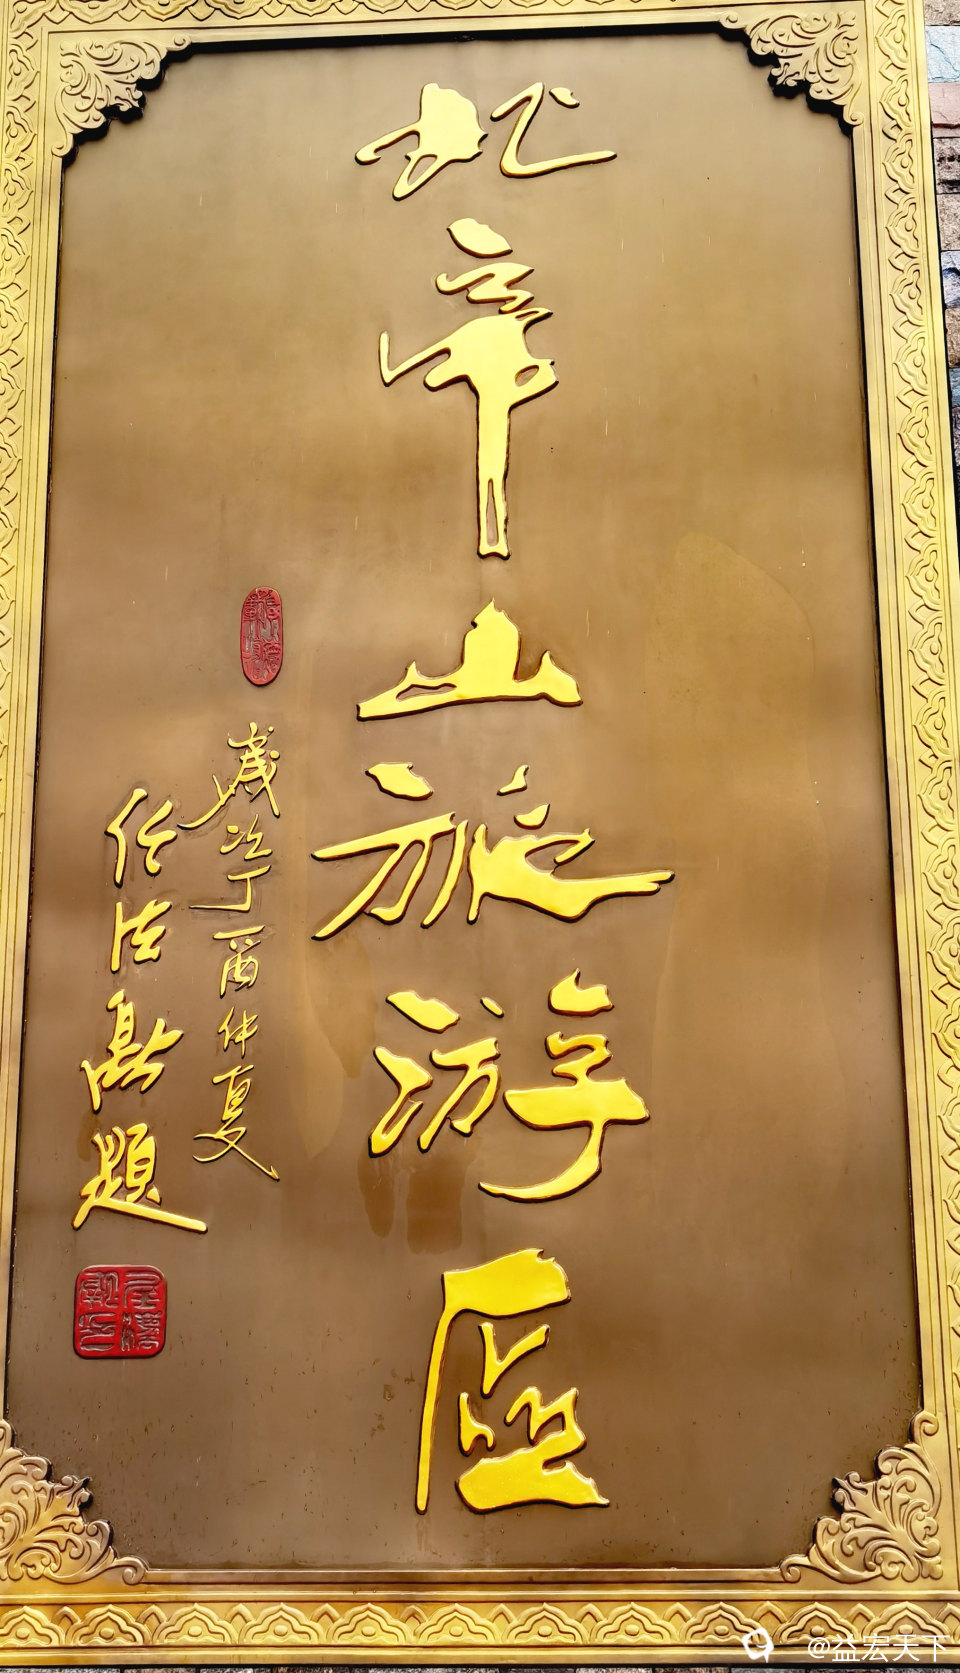 北帝山旅游區
歲次丁酉仲夏
任法融題
@益宏天下